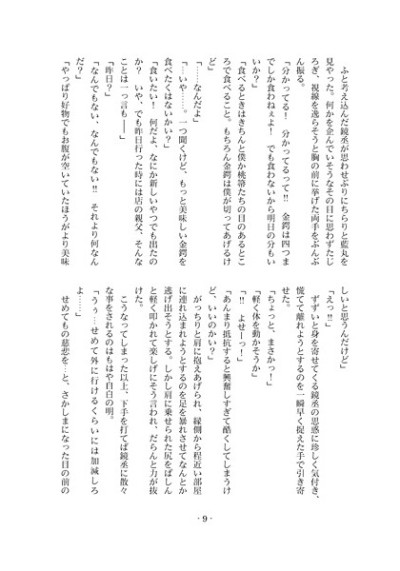 ふと考え込んだ鏡丞が思わせぶりにちらりと藍丸を
見やった。何かを企んでいそうなその目に思わずたじ
ろぎ、視線を逸らそうと胸の前に挙げた両手をぶんぶ
ん振る。
「分かってる! 分かってるって!! 金鍔は四つま
でしか食わねぇよ! でも食わないから明日の分もい
いか?」
「食べるときはきちんと僕か桃箒たちの目のあるとこ
ろで食べること。もちろん金鍔は僕が切ってあげるけ
ど」
「……なんだよ」
「…いや……。一つ聞くけど、もっと美味しい金鍔を
食べたくはないかい?」
「食いたい! 何だよ、なにか新しいやつでも出たの
か? いや、でも昨日行った時には店の親父、そんな
ことは一っ言も――」
「昨日?」
「なんでもない、なんでもない!! それより何なん
だ?」
「やっぱり好物でもお腹が空いていたほうがより美味
しいと思うんだけど」
「えっ!!」
ずずいと身を寄せてくる鏡丞の思惑に珍しく気付き、
慌てて離れようとするのを一瞬早く捉えた手で引き寄
せた。
「ちょっと、まさかっ!」
「軽く体を動かそうか」
「!! よせーっ!」
「あんまり抵抗すると興奮しすぎて酷くしてしまうけ
ど、いいのかい?」
がっちりと肩に抱えあげられ、縁側から程近い部屋
に連れ込まれようとするのを足を暴れさせてなんとか
逃げ出そうとする。しかし肩に乗せられた尻をぱしん
と軽く叩かれて楽しげにそう言われ、だらんと力が抜
けた。
こうなってしまった以上、下手を打てば鏡丞に散々
な事をされるのはもはや自白の明。
「うぅ…せめて外に行けるくらいには加減しろ
よ……」
せめてもの慈悲を…と、さかしまになった目の前の
- 9 -